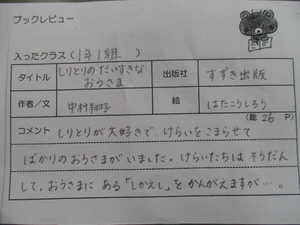 ブックレビュー
入ったクラス ( 1年1組 )
タイトル しりとりのだいすきな おうさま 出版社 すずき出版
作者/文 中村翔子 絵 はたこうしろう
(総 26 P)
コメント しりとりが大好きで、けらいをこまらせて
ばかりのおうさまがいました。けらいたちは そうだん
して、おうさまに ある「しかえし」を かんがえますが…。